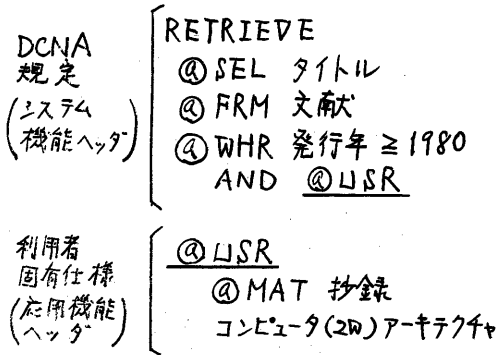 DCNA
規定
(システム
機能ヘッダ)
RETRIEVE
@ SEL タイトル
@ FRM 文献
@ WHR 発行年 ≧ 1980
AND @USR
利用者
固有仕様
(応用機能
ヘッダ)
@USR
@ MAT 抄録
コンピュータ(2W)アーキテクチャ